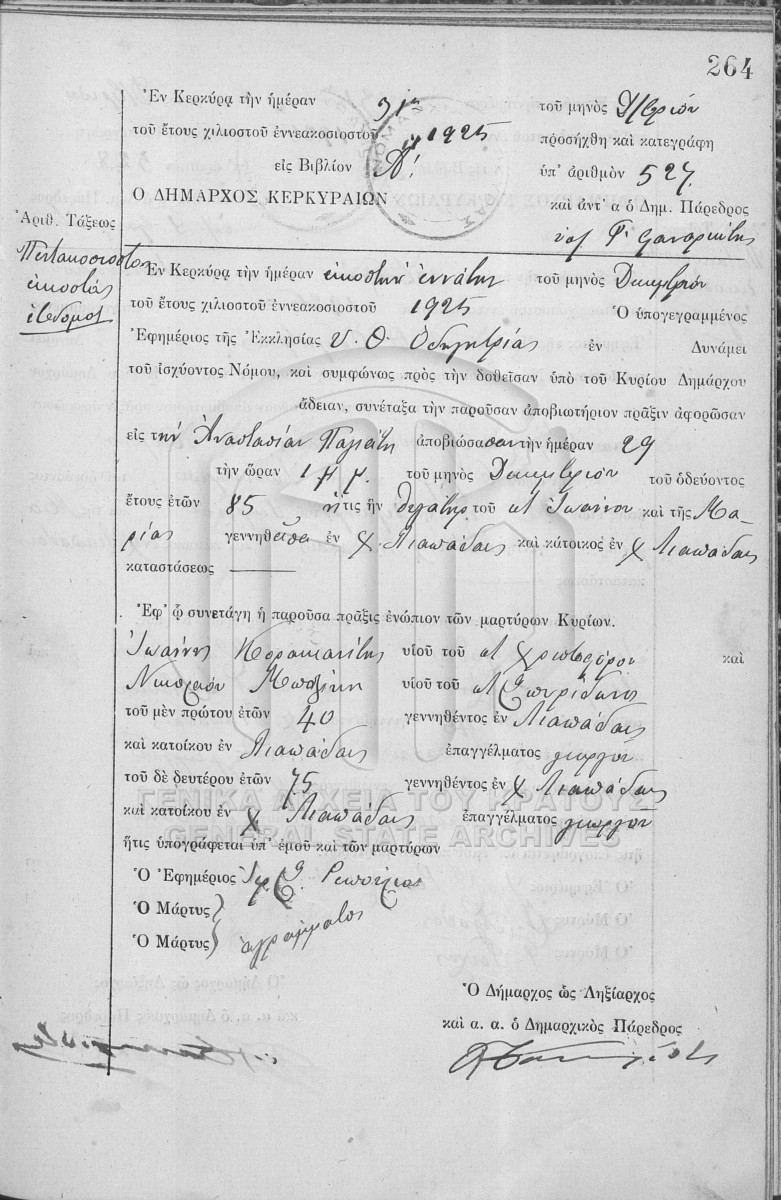 264
Ἐν Κερκύρᾳ τὴν ἡμέραν 31ην τοῦ μηνὸς
τοῦ ἔτους χιλιοστοῦ ἐννεακοσιοστοῦ 1925 προσήχθη καὶ κατεγράφη
εἰς Βιβλίον Α! ὑπ' ἀριθμὸν 527.
Ο ΔΗΜΑΡΧΟΣ ΚΕΡΚΥΡΑΙΩΝ καὶ ἀντ' α ὁ Δημ. Πάρεδρος
Ἀριθ. Τάξεως
Πεντακοσιοστὸς
εἰκοστὸς
ἕβδομος
Ἐν Κερκύρᾳ τὴν ἡμέραν εἰκοστὴν ἐννάτην τοῦ μηνὸς Δεκεμβρίου
τοῦ ἔτους χιλιοστοῦ ἐννεακοσιοστοῦ 1925 Ὁ ὑπογεγραμμένος
Ἐφημέριος τῆς Ἐκκλησίας Υ. Θ. Ὁδηγητρίας ἐν Δυνάμει
τοῦ ἰσχύοντος Νόμου, καὶ συμφώνως πρὸς τὴν δοθεῖσαν ὑπὸ τοῦ Κυρίου Δημάρχου
ἄδειαν, συνέταξα τὴν παροῦσαν ἀποβιωτήριον πρᾶξιν ἀφορῶσαν
εἰς τὴν Ἀναστασίαν ἀποβιώσασαν τὴν ἡμέραν 29
τὴν ὥραν 1 μ μ. τοῦ μηνὸς Δεκεμβρίου τοῦ ὁδεύοντος
ἔτους ἐτῶν 85 ἥτις ἦν θυγάτηρ τοῦ Ἰωάννου καὶ τῆς Μα-
ρίας γεννηθεῖσα ἐν χ. Λιαπάδαις καὶ κάτοικος ἐν χ Λιαπάδαις
καταστάσεως
Ἐφ' ᾧ συνετάγη ἡ παροῦσα πρᾶξις ἐνώπιον τῶν μαρτύρων Κυρίων.
Ἰωάννης Κορακιανίτης υἱοῦ τοῦ Χριστοφόρου καὶ
Νικόλαου υἱοῦ τοῦ Σπυρίδωνος
τοῦ μὲν πρώτου ἐτῶν 40 γεννηθέντος ἐν Λιαπάδαις
καὶ κατοίκου ἐν Λιαπάδαις ἐπαγγέλματος γεωργοῦ
τοῦ δὲ δευτέρου ἐτῶν 75 γεννηθέντος ἐν χ Λιαπάδαις
ΓΕΝΙΚΑ ΑΡΧΕΙΑ ΤΟΥ ΚΡΑΤΟΥΣ
καὶ κατοίκου ἐν χ Λιαπάδαις ἐπαγγέλματος γεωργοῦ
GENERAL STATE ARCHIVES
ἥτις ὑπογράφεται ὑπ' ἐμοῦ καὶ τῶν μαρτύρων
Ὁ Ἐφημέριος
Ὁ Μάρτυς
Ὁ Μάρτυς ἀγράμματοι
Ὁ Δήμαρχος ὡς Ληξίαρχος
καὶ α. α. ὁ Δημαρχικὸς Πάρεδρος